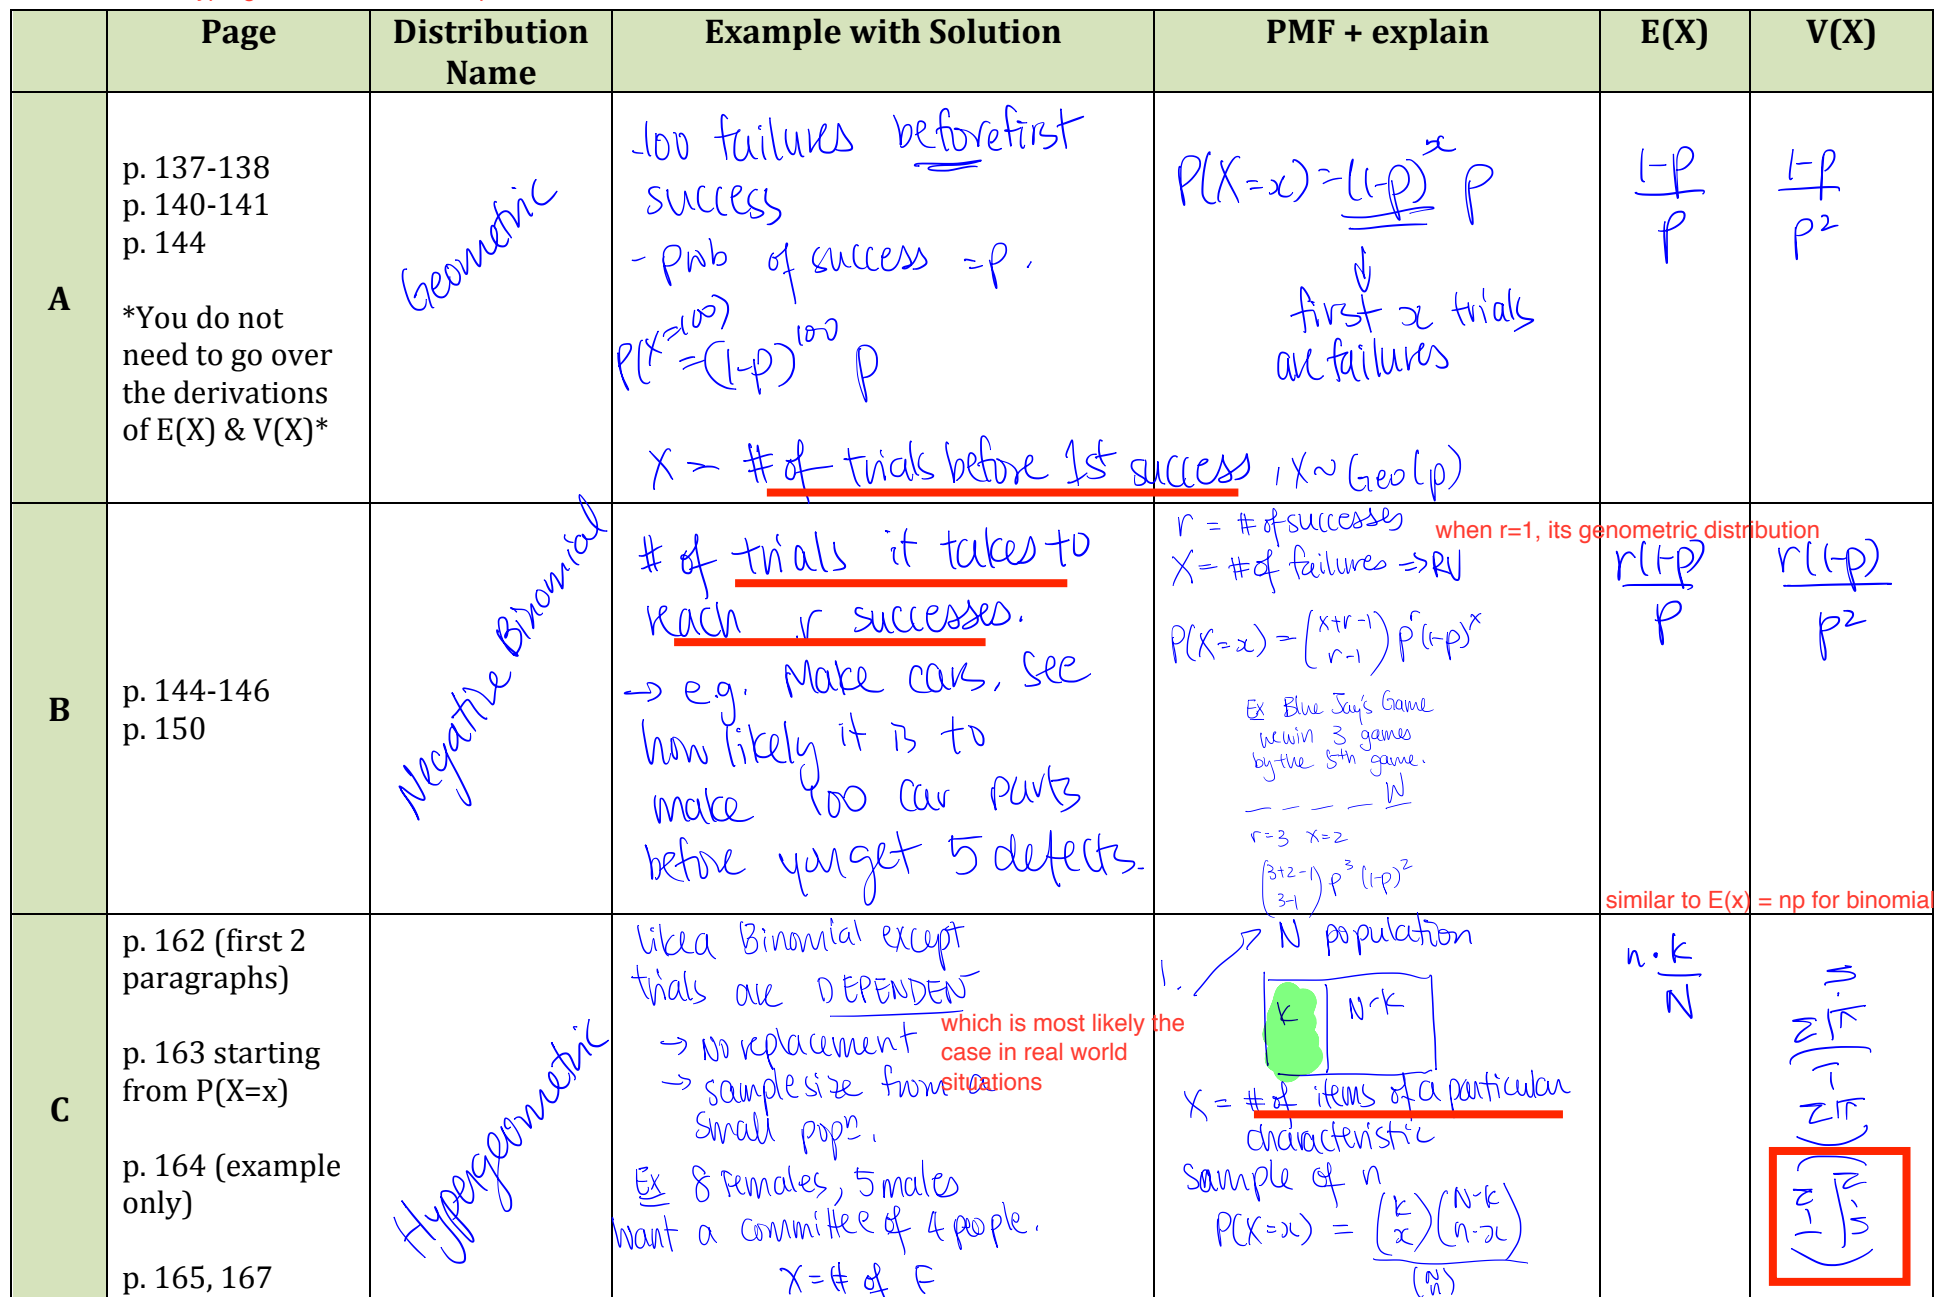 Page
Distribution Name
Example with Solution
PMF + explain
E(X)
V(X)
A
p. 137-138
p. 140-141
p. 144
*You do not
need to go over
the derivations
of E(X) & V(X)*
Geometric
-100 failures before first
success
- prob of success = p.
P(X=100)
= (1-p)^100 p
X = # of trials before 1st success, X ~ Geo(p)
P(X=x) = (1-p)^x p
↓
first x trials
are failures
1-p / p
1-p / p²
B
p. 144-146
p. 150
Negative Binomial
# of trials it takes to
reach r successes.
→ e.g. Make cars, see
how likely it is to
make 100 car parts
before you get 5 defects.
r = # of successes
when r=1, its genometric distribution
X = # of failures => RV
P(X=x) = (x+r-1 / r-1) p^r (1-p)^x
Ex Blue Jay's Game
we win 3 games
by the 5th game.
_ _ _ _ W
r=3 x=2
(3+2-1 / 3-1) p³ (1-p)²
r(1-p) / p
r(1-p) / p²
similar to E(x) = np for binomial
C
p. 162 (first 2
paragraphs)
p. 163 starting
from P(X=x)
p. 164 (example
only)
p. 165, 167
Hypergeometric
like a Binomial except
trials are DEPENDEN
→ No replacement
which is most likely the
case in real world
situations
→ sample size from a
small popⁿ.
Ex 8 Females, 5 males
want a committee of 4 people.
X = # of F
1.
→ N population
k
N-k
X = # of items of a particular
characteristic
sample of n
P(X=x) = (k / x)(N-k / n-x) / (N / n)
n · k / N
n · k / N (1 - k / N) (N-n / N-1)